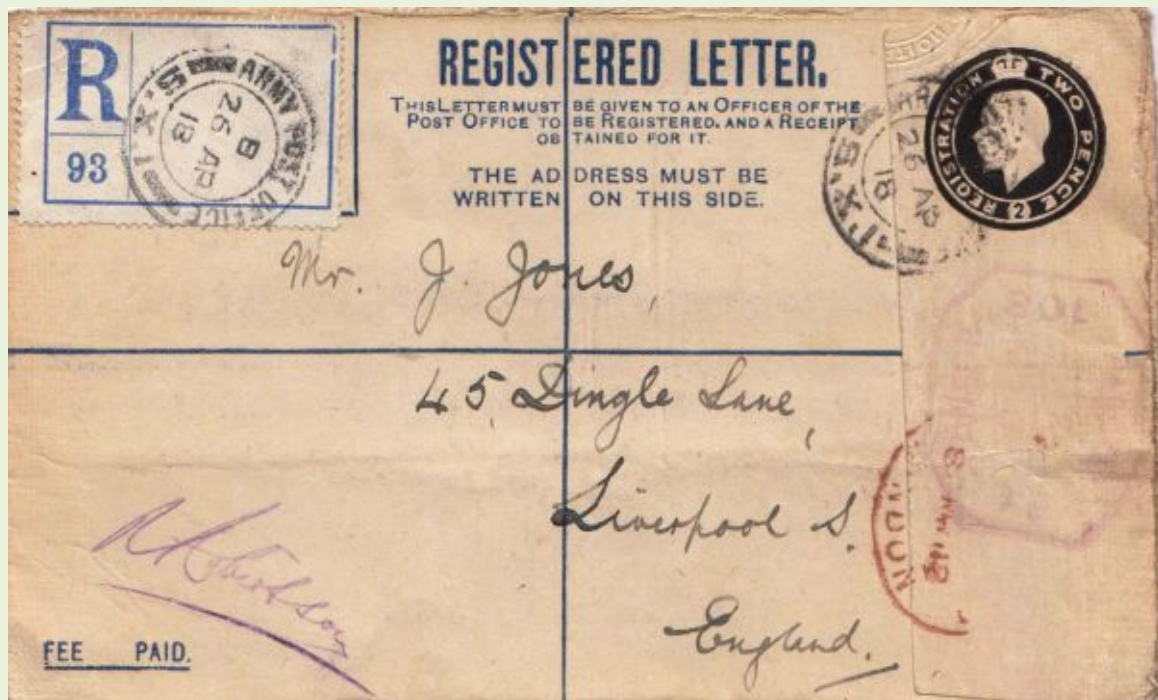 R
93
ARMY POST OFFICE
S.X.1
B
26 AP
18
REGISTERED LETTER.
THIS LETTER MUST BE GIVEN TO AN OFFICER OF THE
POST OFFICE TO BE REGISTERED, AND A RECEIPT
OBTAINED FOR IT.
THE ADDRESS MUST BE
WRITTEN ON THIS SIDE.
REGISTRATION TWO PENCE
(2)
26 AP
18
S.X.1
Mr. J. Jones,
45, Dingle Lane,
Liverpool S.
England.
NDON
FEE PAID.